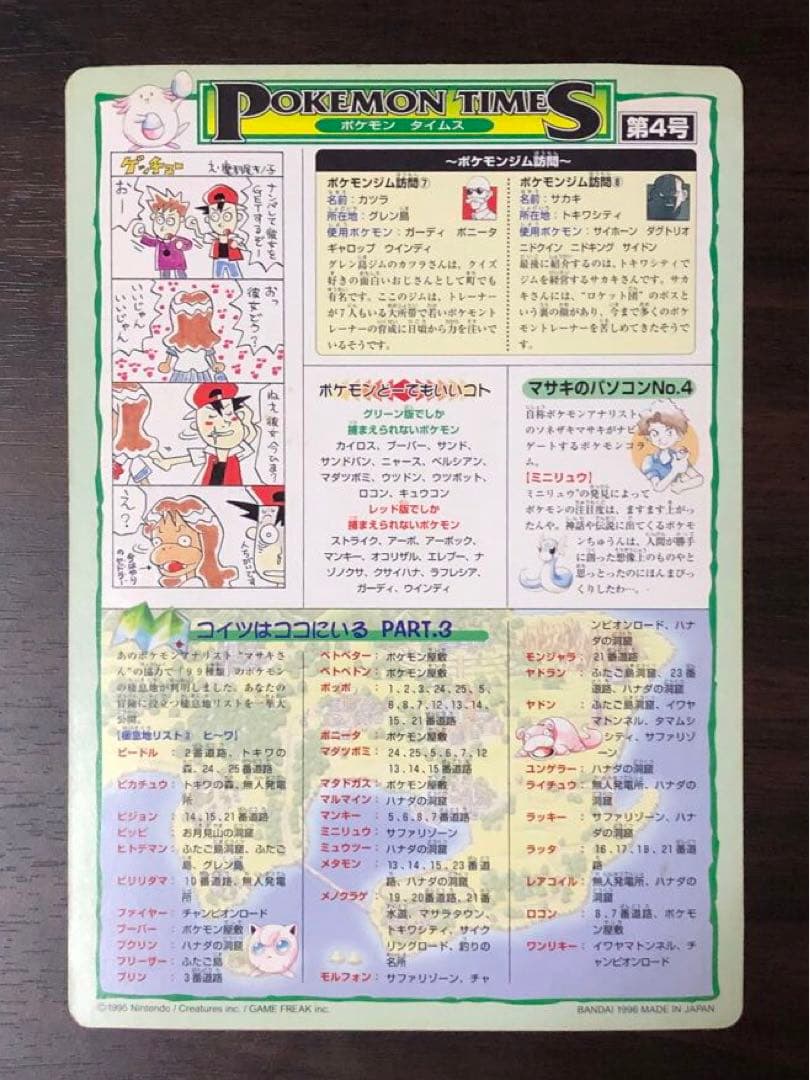 POKEMON TIMES
ポケモン タイムス
第4号
ゲッチュー
ナンパして彼女を
GETするぞー
おー
おっ
彼女どう?
いいじゃん
いいじゃん
ねえ彼女今ひま?
え?
～ポケモンジム訪問～
ポケモンジム訪問⑦
名前：カツラ
所在地：グレン島
使用ポケモン：ガーディ ポニータ
ギャロップ ウインディ
グレン島ジムのカツラさんは、クイズ
好きの面白いおじさんとして町でも
有名です。ここのジムは、トレーナー
が7人もいる大所帯で若いポケモント
レーナーの育成に日頃から力を注いで
いるそうです。
ポケモンジム訪問⑧
名前：サカキ
所在地：トキワシティ
使用ポケモン：サイホーン ダグトリオ
ニドクイン ニドキング サイドン
最後に紹介するのは、トキワシティで
ジムを経営するサカキさんです。サカ
キさんには、“ロケット団”のボスと
いう裏の顔があり、今まで多くのポケ
モントレーナーを苦しめてきたそうで
す。
ポケモンどーでもいいコト
グリーン版でしか
捕まえられないポケモン
カイロス、ブーバー、サンド、
サンドパン、ニャース、ペルシアン、
マダツボミ、ウツドン、ウツボット、
ロコン、キュウコン
レッド版でしか
捕まえられないポケモン
ストライク、アーボ、アーボック、
マンキー、オコリザル、エレブー、ナ
ゾノクサ、クサイハナ、ラフレシア、
ガーディ、ウインディ
マサキのパソコンNo.4
自称ポケモンアナリスト
のソネザキマサキがナビ
ゲートするポケモンコラ
ム。
【ミニリュウ】
ミニリュウ”の発見によって
ポケモンの注目度は、ますます上がっ
たんや。神話や伝説に出てくるポケモ
ンちゅうんは、人間が勝手
に創った想像上のものやと
思っとったのにほんまびっ
くりしたわ…。
コイツはココにいる PART.3
あのポケモンマナリスト“マサキさ
ん”の協力で「99種類」のポケモン
の棲息地が判明しました。あなたの
冒険に役立つ棲息地リストを一挙大
公開。
【棲息地リスト3 ヒ～ワ】
ビードル：2番道路、トキワの
森、24、25番道路
ピカチュウ：トキワの森、無人発電
所
ピジョン：14、15、21番道路
ピッピ：お月見山の洞窟
ヒトデマン：ふたご島洞窟、ふたご
島、グレン島
ビリリダマ：10番道路、無人発電
所
ファイヤー：チャンピオンロード
ブーバー：ポケモン屋敷
プクリン：ハナダの洞窟
フリーザー：ふたご島
プリン：3番道路
ベトベター：ポケモン屋敷
ベトベトン：ポケモン屋敷
ポッポ：1、2、3、24、25、5、
6、8、7、12、13、14、
15、21番道路
ポニータ：ポケモン屋敷
マダツボミ：24、25、5、6、7、12
13、14、15番道路
マタドガス：ポケモン屋敷
マルマイン：ハナダの洞窟
マンキー：5、6、8、7番道路
ミニリュウ：サファリゾーン
ミュウツー：ハナダの洞窟
メタモン：13、14、15、23番道
路、ハナダの洞窟
メノクラゲ：19、20番道路、21番
水道、マサラタウン、
トキワシティ、サイク
リングロード、釣りの
名所
モルフォン：サファリゾーン、チャ
ンピオンロード、ハナ
ダの洞窟
モンジャラ：21番道路
ヤドラン：ふたご島洞窟、23番
道路、ハナダの洞窟
ヤドン：ふたご島洞窟、イワヤ
マトンネル、タマムシ
シティ、サファリゾー
ン
ユンゲラー：ハナダの洞窟
ライチュウ：無人発電所、ハナダの
洞窟
ラッキー：サファリゾーン、ハナ
ダの洞窟
ラッタ：16、17、18、21番道
路
レアコイル：無人発電所、ハナダの
洞窟
ロコン：8、7番道路、ポケモ
ン屋敷
ワンリキー：イワヤマトンネル、チ
ャンピオンロード
©1995 Nintendo / Creatures inc. / GAME FREAK inc.
BANDAI 1996 MADE IN JAPAN